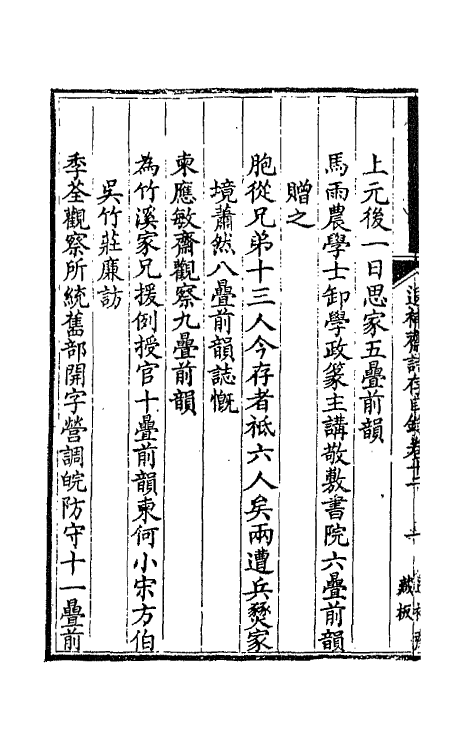 上元後一日思家五疊前韻
馬雨農學士卸學政篆主講敬敷書院六疊前韻
贈之
胞從兄弟十三人今存者祗六人矣兩遭兵燹家
境蕭然八疊前韻誌慨
柬應敏齋觀察九疊前韻
為竹溪家兄援例授官十疊前韻柬何小宋方伯
吳竹莊廉訪
季荃觀察所統舊部開字營調皖防守十一疊前
補齋詩存目錄卷十二
藏板